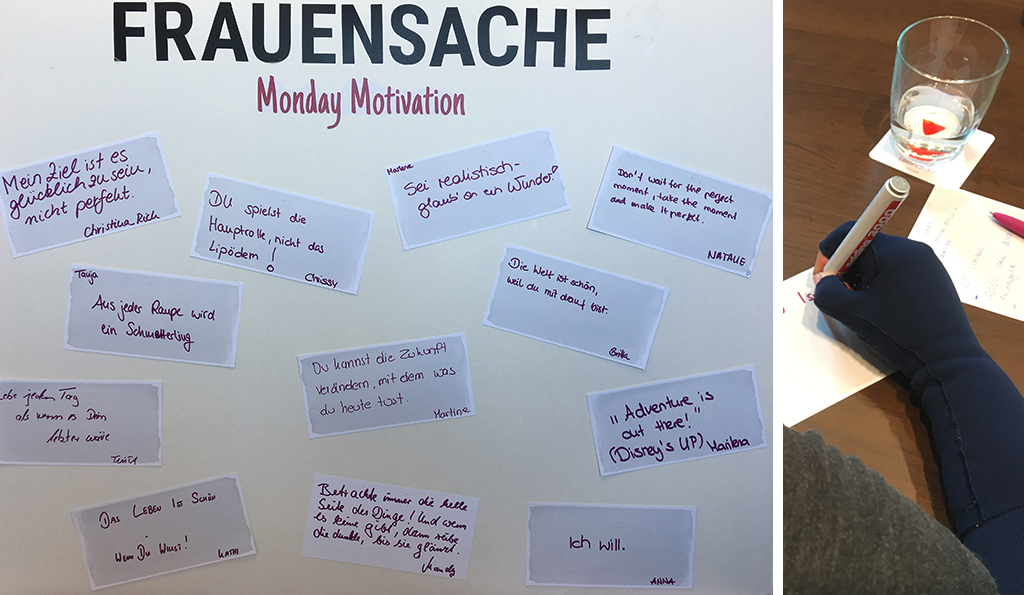 FRAUENSACHE
Monday Motivation
Mein Ziel ist es
glücklich zu sein,
nicht perfekt.
Christina Rich
DU spielst die
Hauptrolle, nicht das
Lipödem!
Chrissy
Marlene
Sei realistisch-
glaub' an ein Wunder!
Don't wait for the perfect
moment, take the moment
and make it perfect.
NATALIE
Tanja
Aus jeder Raupe wird
ein Schmetterling
Die Welt ist schön,
weil du mit drauf bist.
Du kannst die Zukunft
verändern, mit dem was
du heute tust.
Martina
Lebe jeden Tag
als wenn es Dein
letzter wäre
„Adventure is
out there!"
(Disney's UP) Marilena
DAS LEBEN IST SCHÖN
WENN DU WILLST!
KATHI
Betrachte immer die helle
Seite der Dinge! Und wenn
es keine gibt, dann reibe
die dunkle, bis sie glänzt.
Mandy
Ich will.
ANNA
edding 3000